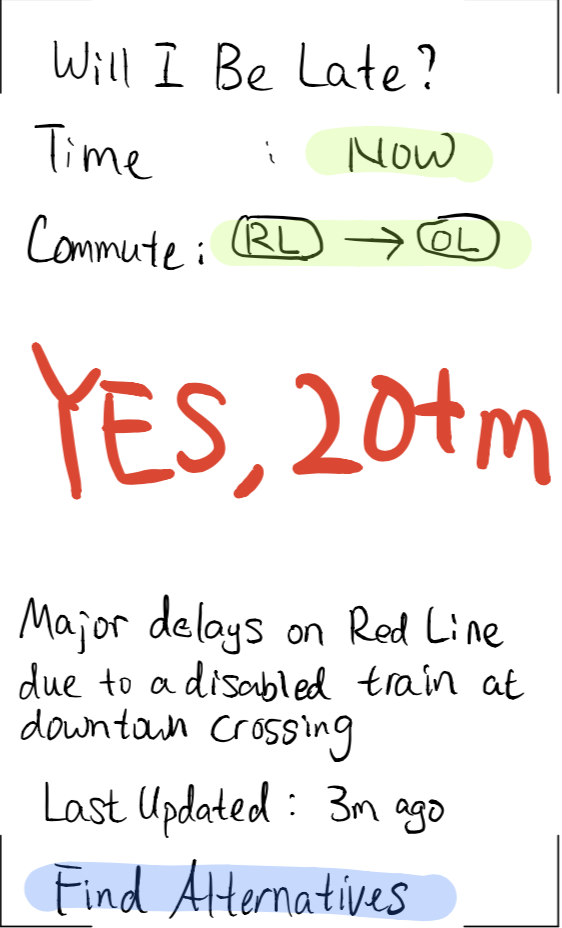 Will I Be Late?
Time : NOW
Commute: RL → OL
YES, 20+m
Major delays on Red Line
due to a disabled train at
downtown crossing
Last Updated: 3m ago
Find Alternatives